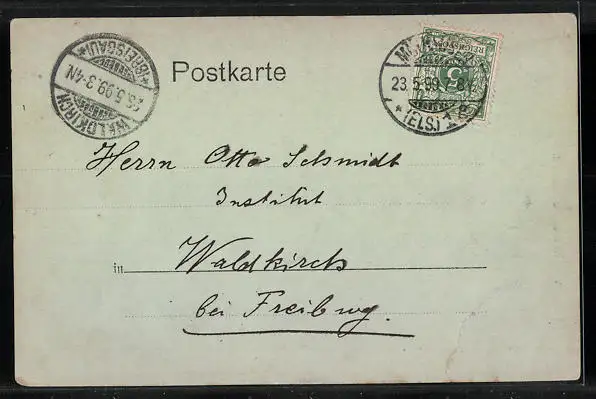 Postkarte
WALDKIRCH
23.5.99.3-4N
*(BREISGAU)*
23.5.99
*(ELS.) 1
REICHSPOST
5
Herrn Otto Schmidt
Institut
in Waldkirch
bei Freiburg.